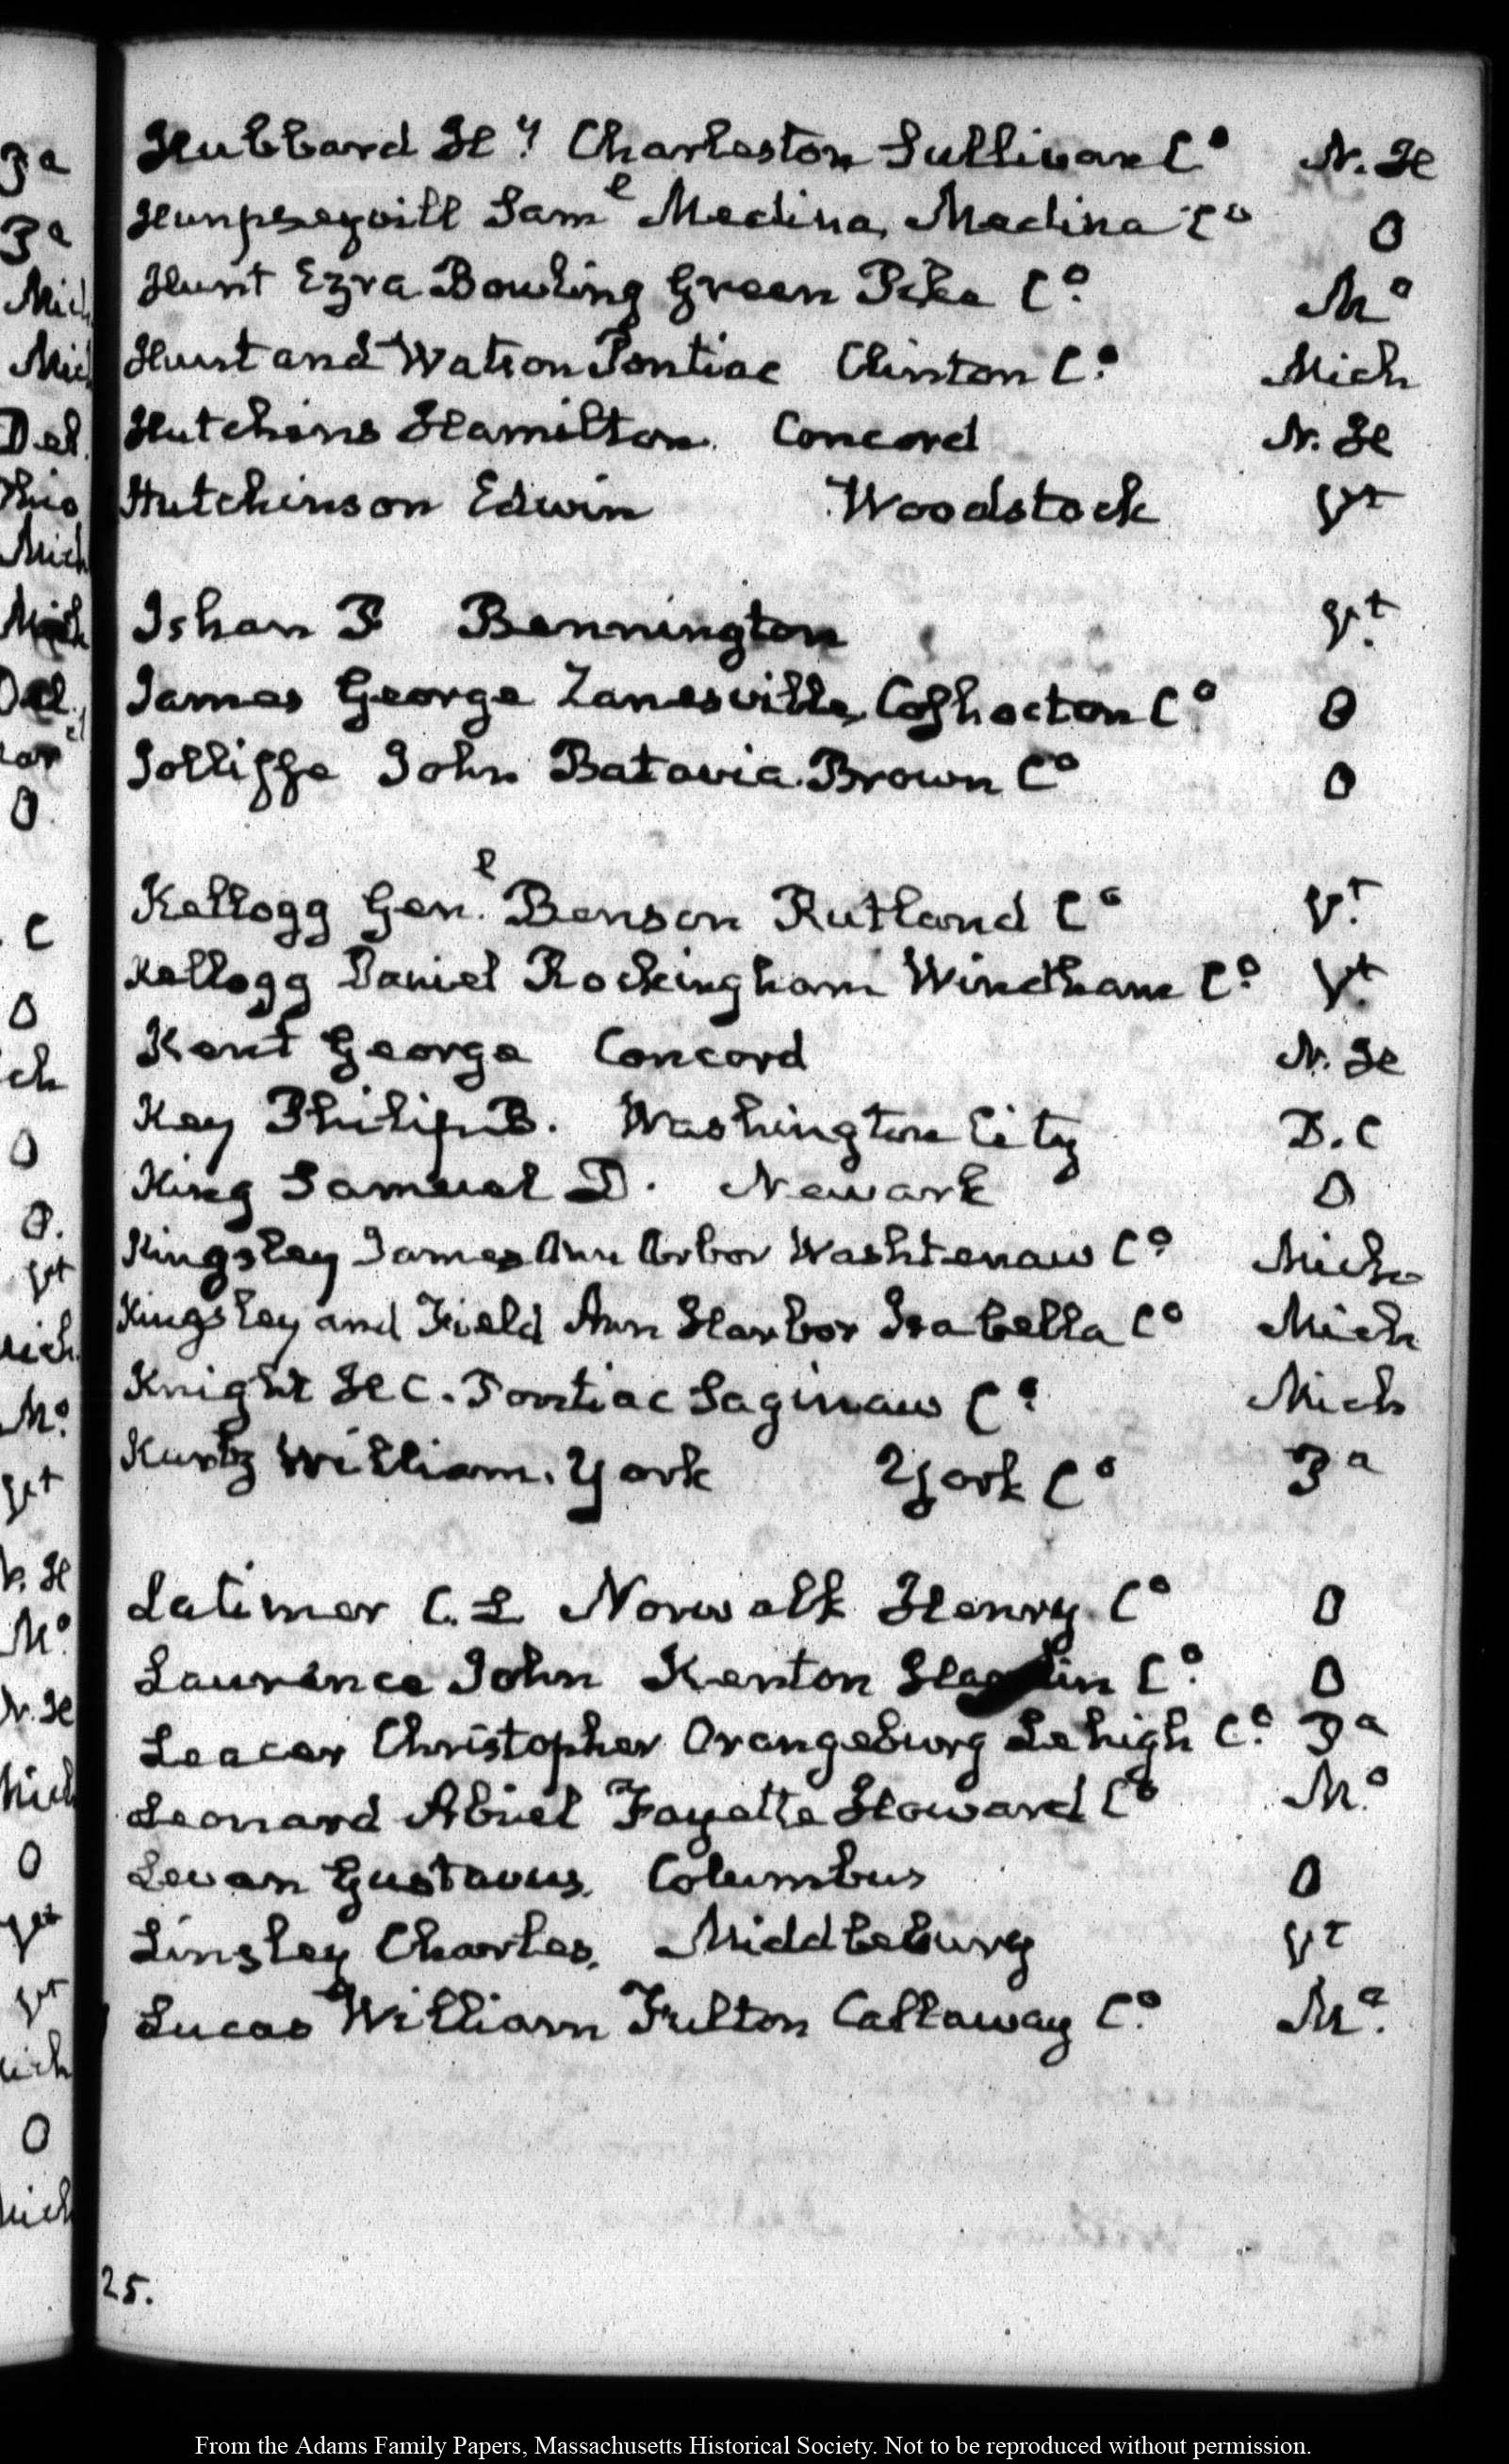 Hubbard Hy Charleston Sullivan Co N. H
Hunpseyvill Saml Medina, Medina Co O
Hunt Ezra Bowling Green Pike Co Mo
Hunt and Watson Pontiac Clinton Co. Mich
Hutchins Hamilton. Concord N. H
Hutchinson Edwin Woodstock Vt
Isham P Bennington Vt
James George Zanesville, Coshocton Co O
Jolliffe John Batavia. Brown Co O
Kellogg Genl. Benson Rutland Co Vt
Kellogg Daniel Rockingham Windham Co. Vt
Kent George Concord N. H
Key Philip B. Washington City D. C
King Samuel D. Newark O
Kingsley James Ann Arbor Washtenaw Co Mich
Kingsley and Field Ann Harbor Isabella Co Mich
Knight H C. Pontiac Saginaw Co. Mich
Kurtz William. York York Co Pa
Latimer C. L Norwalk Henry. Co O
Laurence John Kenton Hardin Co. O
Leacer Christopher Orangeburg Lehigh Co. Pa
Leonard Abiel Fayette Howard Co Mo.
Levan Gustavus. Columbus O
Linsley Charles, Middlebury Vt
Lucas William Fulton Callaway Co. Mo.
25.
From the Adams Family Papers, Massachusetts Historical Society. Not to be reproduced without permission.